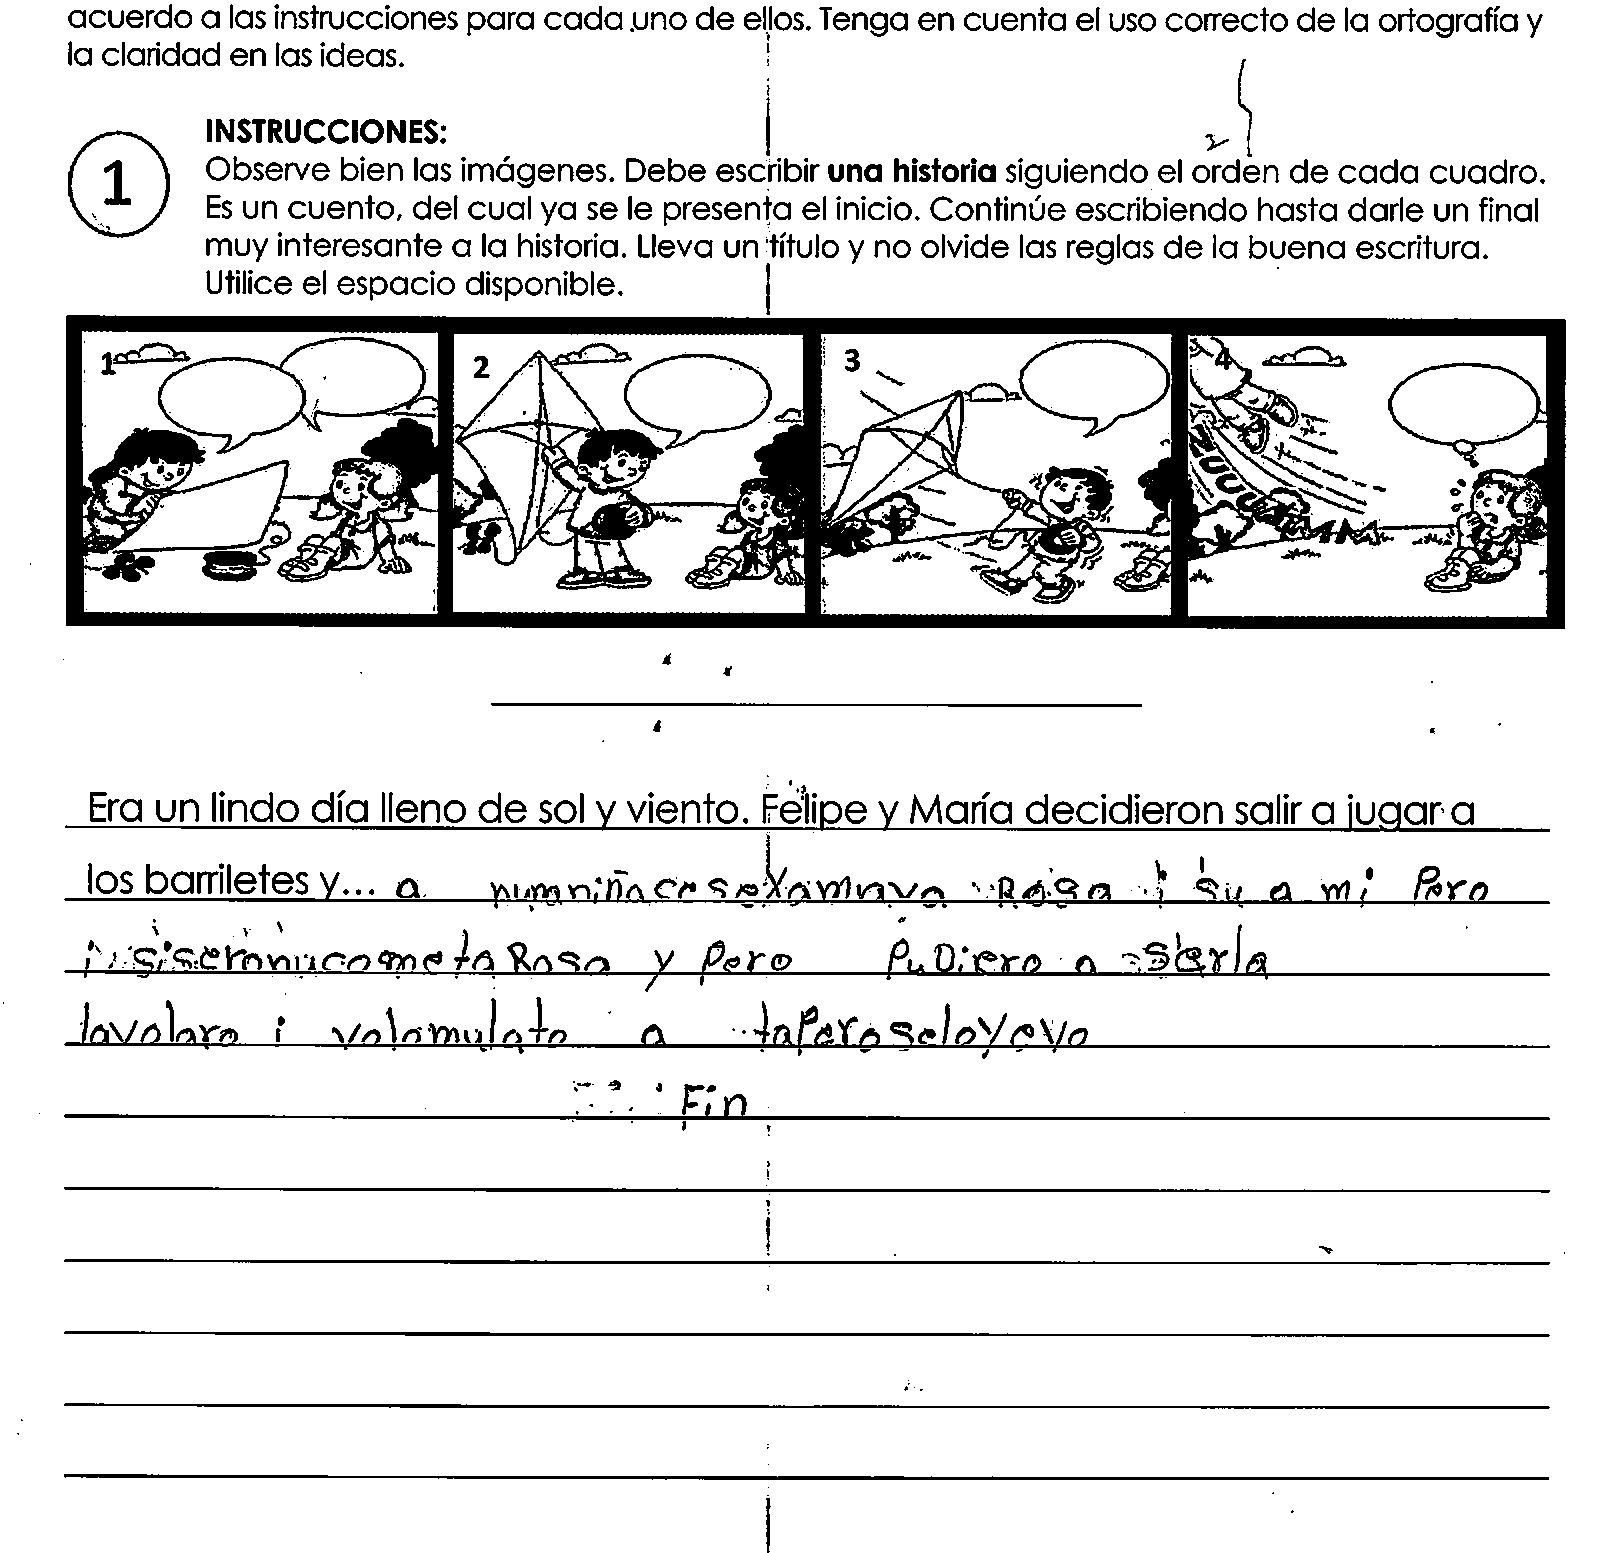 acuerdo a las instrucciones para cada uno de ellos. Tenga en cuenta el uso correcto de la ortografía y
la claridad en las ideas.
INSTRUCCIONES:
1
Observe bien las imágenes. Debe escribir una historia siguiendo el orden de cada cuadro.
Es un cuento, del cual ya se le presenta el inicio. Continúe escribiendo hasta darle un final
muy interesante a la historia. Lleva un título y no olvide las reglas de la buena escritura.
Utilice el espacio disponible.
1 2 3 4
Era un lindo día lleno de sol y viento. Felipe y María decidieron salir a jugar a
los barriletes y... a Rosa i su a mi Pero
Rosa y Pero PuDiero a serla
lavolaro i volamulato a taPeroseloyevo
Fin